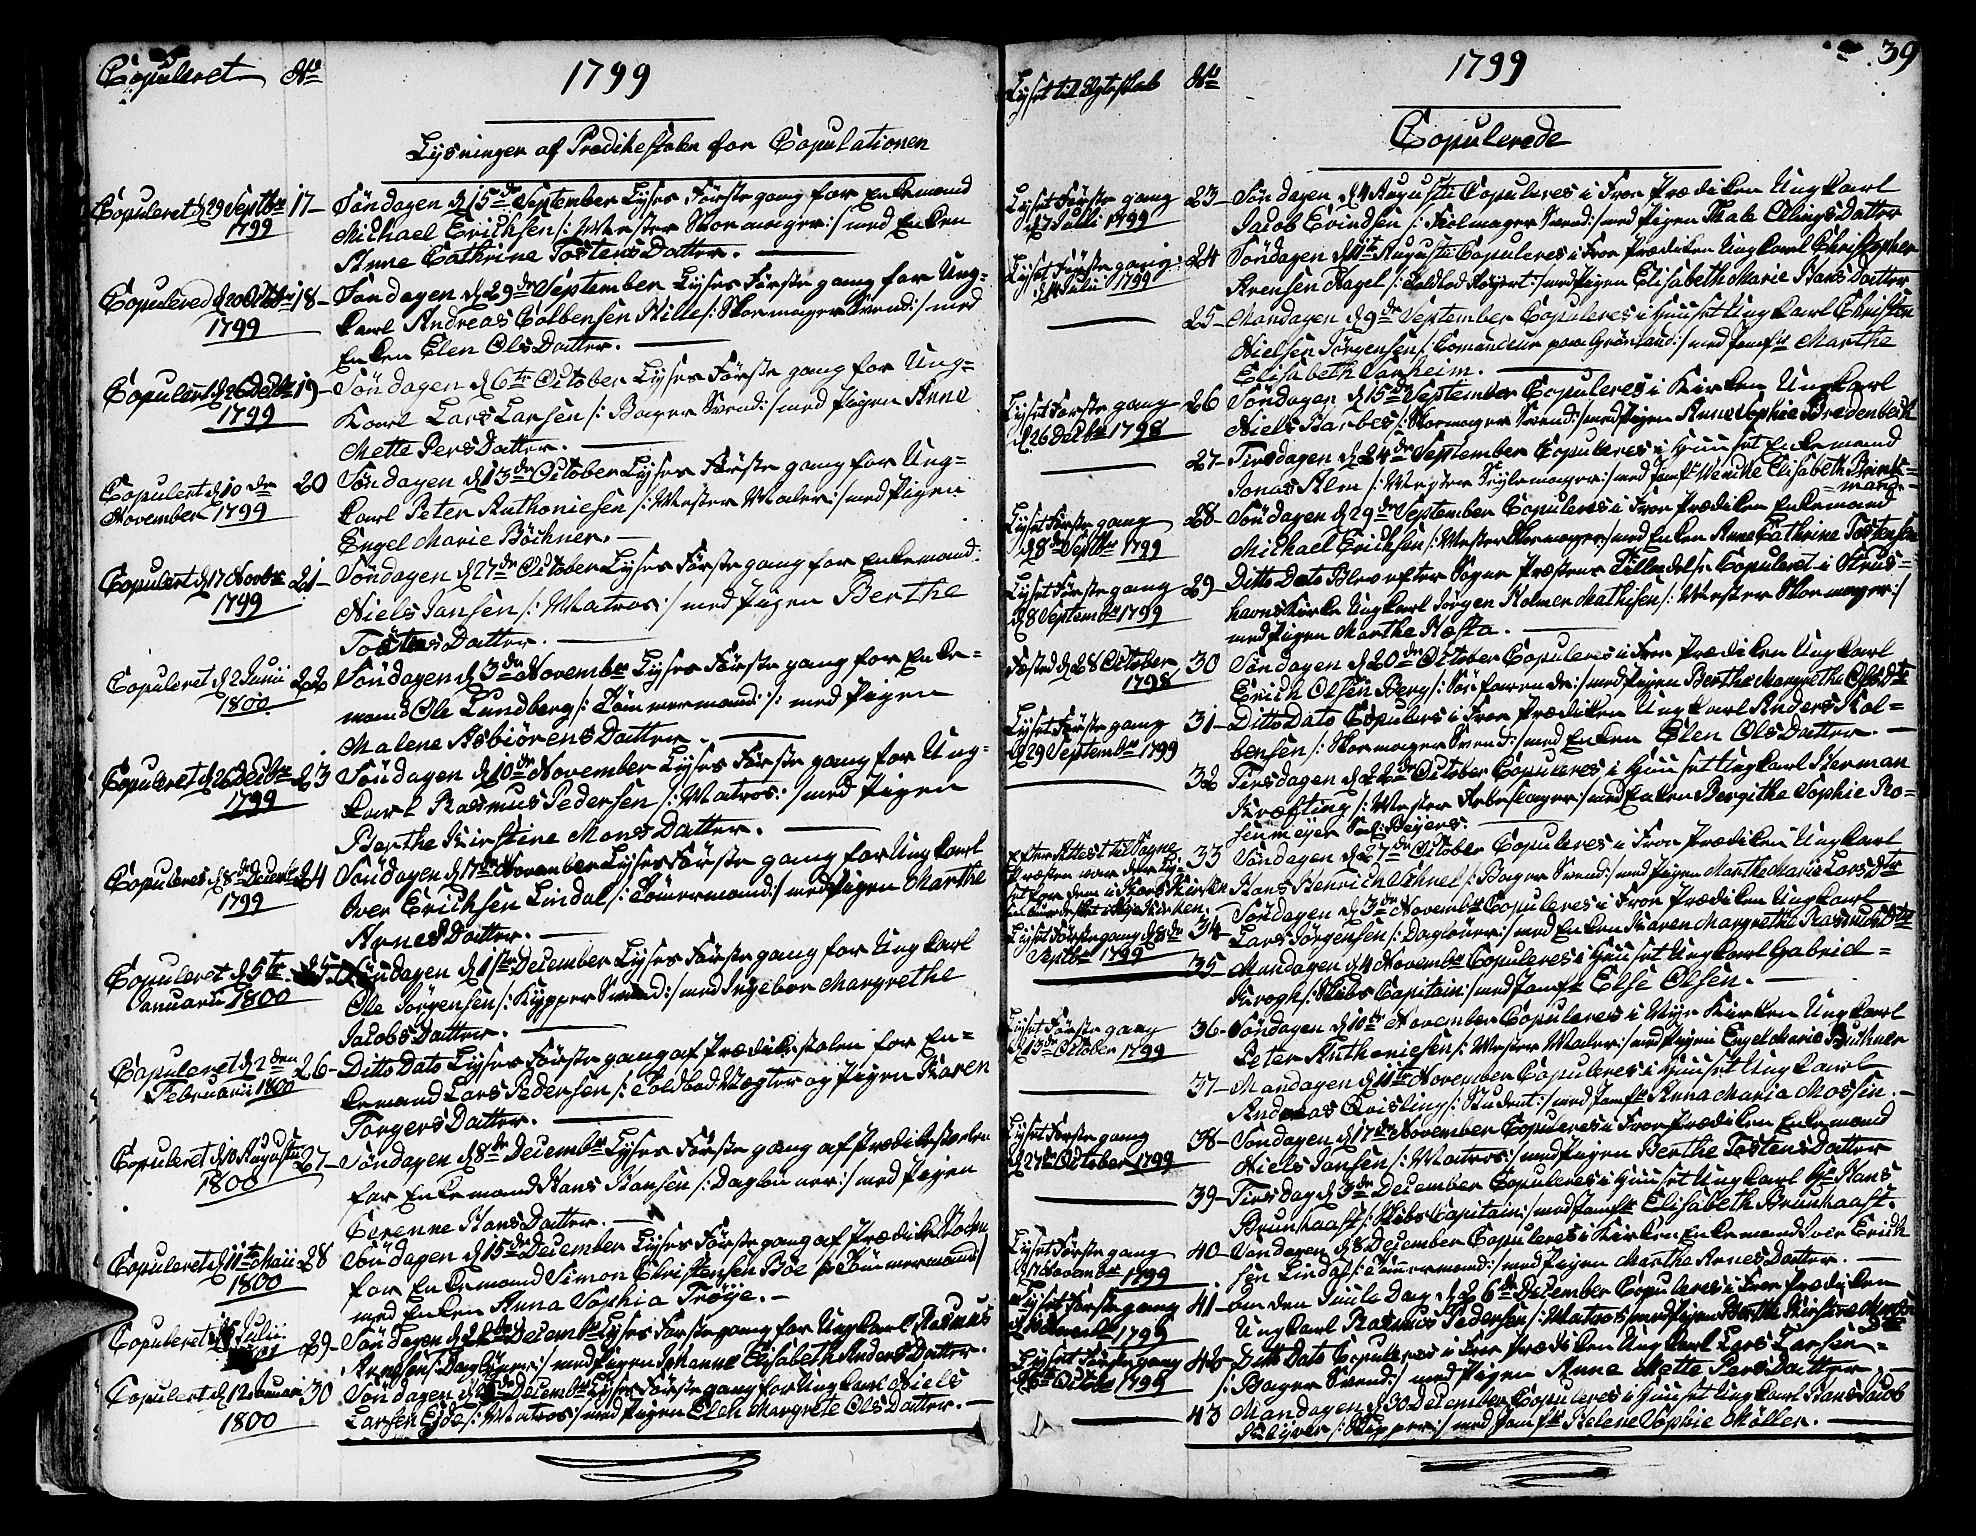 Copuleret No 1799
Lysninger af Prædikestolen for Copulationen
Copuleret d 29 Septbr 1799
17 – Søndagen d 15de September Lyses Første gang for Enkemand
Michael Erichsen /: Mester Skomager :/ med Enken
Anne Cathrine Tostens Datter.
Copulered d 20 Octbr 1799
18 – Søndagen d 29de September Lyses Første gang for Ung=
karl Andreas Colbensen Hille /: Skomager Svend :/ med
Enken Elen Ols Datter.
Copulert d 26 Decbr 1799
19 – Søndagen d 6te October Lyses Første gang for Ung=
Karl Lars Larsen /: Bager Svend :/ med Pigen Anne
Mette Pers Datter.
Copulert d 10de November 1799
20 Søndagen d 13de October Lyses Første gang for Ung=
karl Peter Anthoniesen /: Mester Maler :/ med Pigen
Engel Marie Böchner. –
Copulert d 17 Novbr 1799
21 – Søndagen d 27de October Lyses Første gang for Enkemand
Niels Jansen /: Matros :/ med Pigen Berthe
Tostens Datter.
Copuleret d 2 Junii 1800
22 Søndagen d 3de Novembr Lyses Første gang for Enke=
mand Ole Lundberg /: Tömmermand :/ med Pigen
Malene Asbiörens Datter.
Copuleret d 26 Decbr 1799
23 Søndagen d 10de November Lyses Første gang for Ung=
karl Rasmus Pedersen /: Matros :/ med Pigen
Berthe Kirstine Mons Datter.
Copuleres d 8de Decembr 1799
24 Søndagen d 17de November Lyses Første gang for Ungkarl
Iver Erichsen Lindal /: Tömermand :/ med Pigen Marthe
Arnes Datter.
Copuleret d 5te Januarii 1800
25 Søndagen d 1ste December Lyses Første gang for Ungkarl
Ole Jörgensen /: Kypper Svend :/ med Ingebor Margrethe
Jacobs Datter.
Copuleret d 2den Februarii 1800
26 – Ditto Dato Lyses Første gang af Prædikestolen for En=
kemand Lars Pedersen /: Toldbod Vægter og Pigen Karen
Torgers Datter.
Copuleret d 10 Augustii 1800
27 – Søndagen d 8de Decembr Lyses Første gang af Prædikestolen
for Enkemand Hans Hansen /: Daglönner :/ med Pigen
Cerenne Hans Datter.
Copuleret d 11te Maii 1800
28 Søndagen d 15de December Lyses Første gang af Prædike Stolen
for Enkemand Simon Christensen Böe /: Tömmermand :/
med Enken Anna Sophia Tröye. –
Copuleret Julii
29 – Søndagen d 22de Decembr Lyses Første gang for Ungkarl Rasmus
/: Daglöner :/ med Pigen Johanne Elisabeth Anders Datter.
Copulert d 12 Januari 1800
30 Søndagen d Decembr Lyses Første gang for Ungkarl Niels
Larsen Eyde /: Matros :/ med Pigen Elen Margrete Ols Datter. –
39
Lyset til Ægteskab No 1799
Copulerede
Lyset Første gang d 7 Julii 1799
23 – Søndagen d 4 Augusti Copuleres i Froe Prædiken Ungkarl
Jacob Evindsen /: Hiolmager Svend :/ med Pigen Thale Ellings Datter
Lyset Første gang d 14 Julii 1799
24 Søndagen d 11te Augusti Copuleres i Froe Prædiken Ungkarl Christopher
Arensen Hagel /: Toldbod Røyert :/ med Pigen Elisabeth Marie Hans Datter
25 – Mandagen d 9de September Copuleres i Huuset Ungkarl Christen
Nielsen Jörgensen /: Comandeur paa Grönland :/ med Jomfr Marthe
Elisabeth Danheim.
Lyset Første gang d 26 Decbr 1798
26 Søndagen d 15de September Copuleres i Kirken Ungkarl
Niels Barbes /: Skomager Svend :/ med Pigen Anne Sophie Bredenbech
27 – Tirsdagen d 24de September Copuleres i Huuset Enkemand
Jonas Alm /: Mester Seylemager :/ med Jomfr Wencke Elisabeth Brink=
mand
Lyset Første gang d 8de Septbr 1799
28 – Søndagen d 29de September Copuleres i Froe Prædiken Enkemand
Michael Erichsen /: Mester Skomager :/ med Enken Anne Cathrine Tostensen
Lyset Første gang d 8 Septembr 1799
29 – Ditto Dato Blev efter Sogne Præstens Tilladelse Copuleret i Strus=
havns Kirke Ungkarl Jörgen Rolmer Mathisen /: Mester Skomager :/
med Pigen Marthe Næsta.
Fæsted d 28 October 1798
30 Søndagen d 20de October Copuleres i Froe Prædiken Ungkarl
Erich Olsen Berg /: Söefarende :/ med Pigen Berthe Margrethe Olsdtr
Lyset Første gang d 29 Septembr 1799
31 – Ditto Dato Copulers i Froe Prædiken Ungkarl Anders Kol=
bensen /: Skomager Svend :/ med Enken Elen Ols Datter. –
32 Tirsdagen d 22de October Copuleres i Huuset Ungkarl Herman
Kræfting /: Mester Rebslager :/ med Enken Bergithe Sophie Ro=
senmeyer Beyers.
Efter Attest til Sogne
Præsten var der Ly=
set for dem i Kors Kirken
33 Søndagen d 27de October Copuleres i Froe Prædiken Ungkarl
Hans Henrich Schnel /: Bager Svend :/ med Pigen Marthe Marie Lars Dtr
Lyset Første gang d 8de Septbr 1799
34 – Søndagen d 3de Novembr Copuleres i Froe Prædiken Ungkarl
Lars Jörgensen /: Daglöner :/ med Enken Karen Margrethe Rasmus Dtr
35 – Mandagen d 4 Novembr Copuleres i Huuset Ungkarl Gabriel
Krogh /: Skibs Capitain :/ med Jomfr Else Olsen. –
Lyset Første gang d 13de October 1799
36 – Søndagen d 10de November Copuleres i Nye Kirken Ungkarl
Peter Anthoniesen /: Mester Maler :/ med Pigen Engel Marie Buchner
37 – Mandagen d 11te November Copuleres i Huuset Ungkarl
Andreas Qvisling /: Student :/ med Jomfr Anna Maria Mossin. –
Lyset Første gang d 27de October 1799
38 – Søndagen d 17de November Copuleres i Froe Prædiken Enkemand
Niels Jansen /: Matros :/ med Pigen Berthe Tostens Datter
39 – Tirsdag d 3de December Copuleres i Huuset Ungkarl Hr Hans
Brunhaast /: Skibs Capitain :/ med Jomfr Elisabeth Brunhaast.
Lyset Første gang d 17 Novembr 1799
40 – Søndagen d 8 December Copuleres i Kirken Enkemand Iver Erich
sen Lindal /: Tömmermand :/ med Pigen Marthe Arnes Datter.
Lyset Første gang Novembr 1799
41 – 2den Juule Dag, d 26de December Copuleres i Froe Prædiken
Ungkarl Rasmus Pedersen /: Matros :/ med Pigen Berthe Kirstine Mons
Dtr
Lyset Første gang d 6te Octobr 1799
42 – Ditto Dato Copuleres i Froe Prædiken Ungkarl Lars Larsen
/: Bager Svend :/ med Pigen Anne Mette Pers Datter. –
43 Mandagen d 30 December Copuleres i Huuset Ungkarl Hans Jacob
Klÿver /: Skipper :/ med Jomfr Helene Sophie Möller.